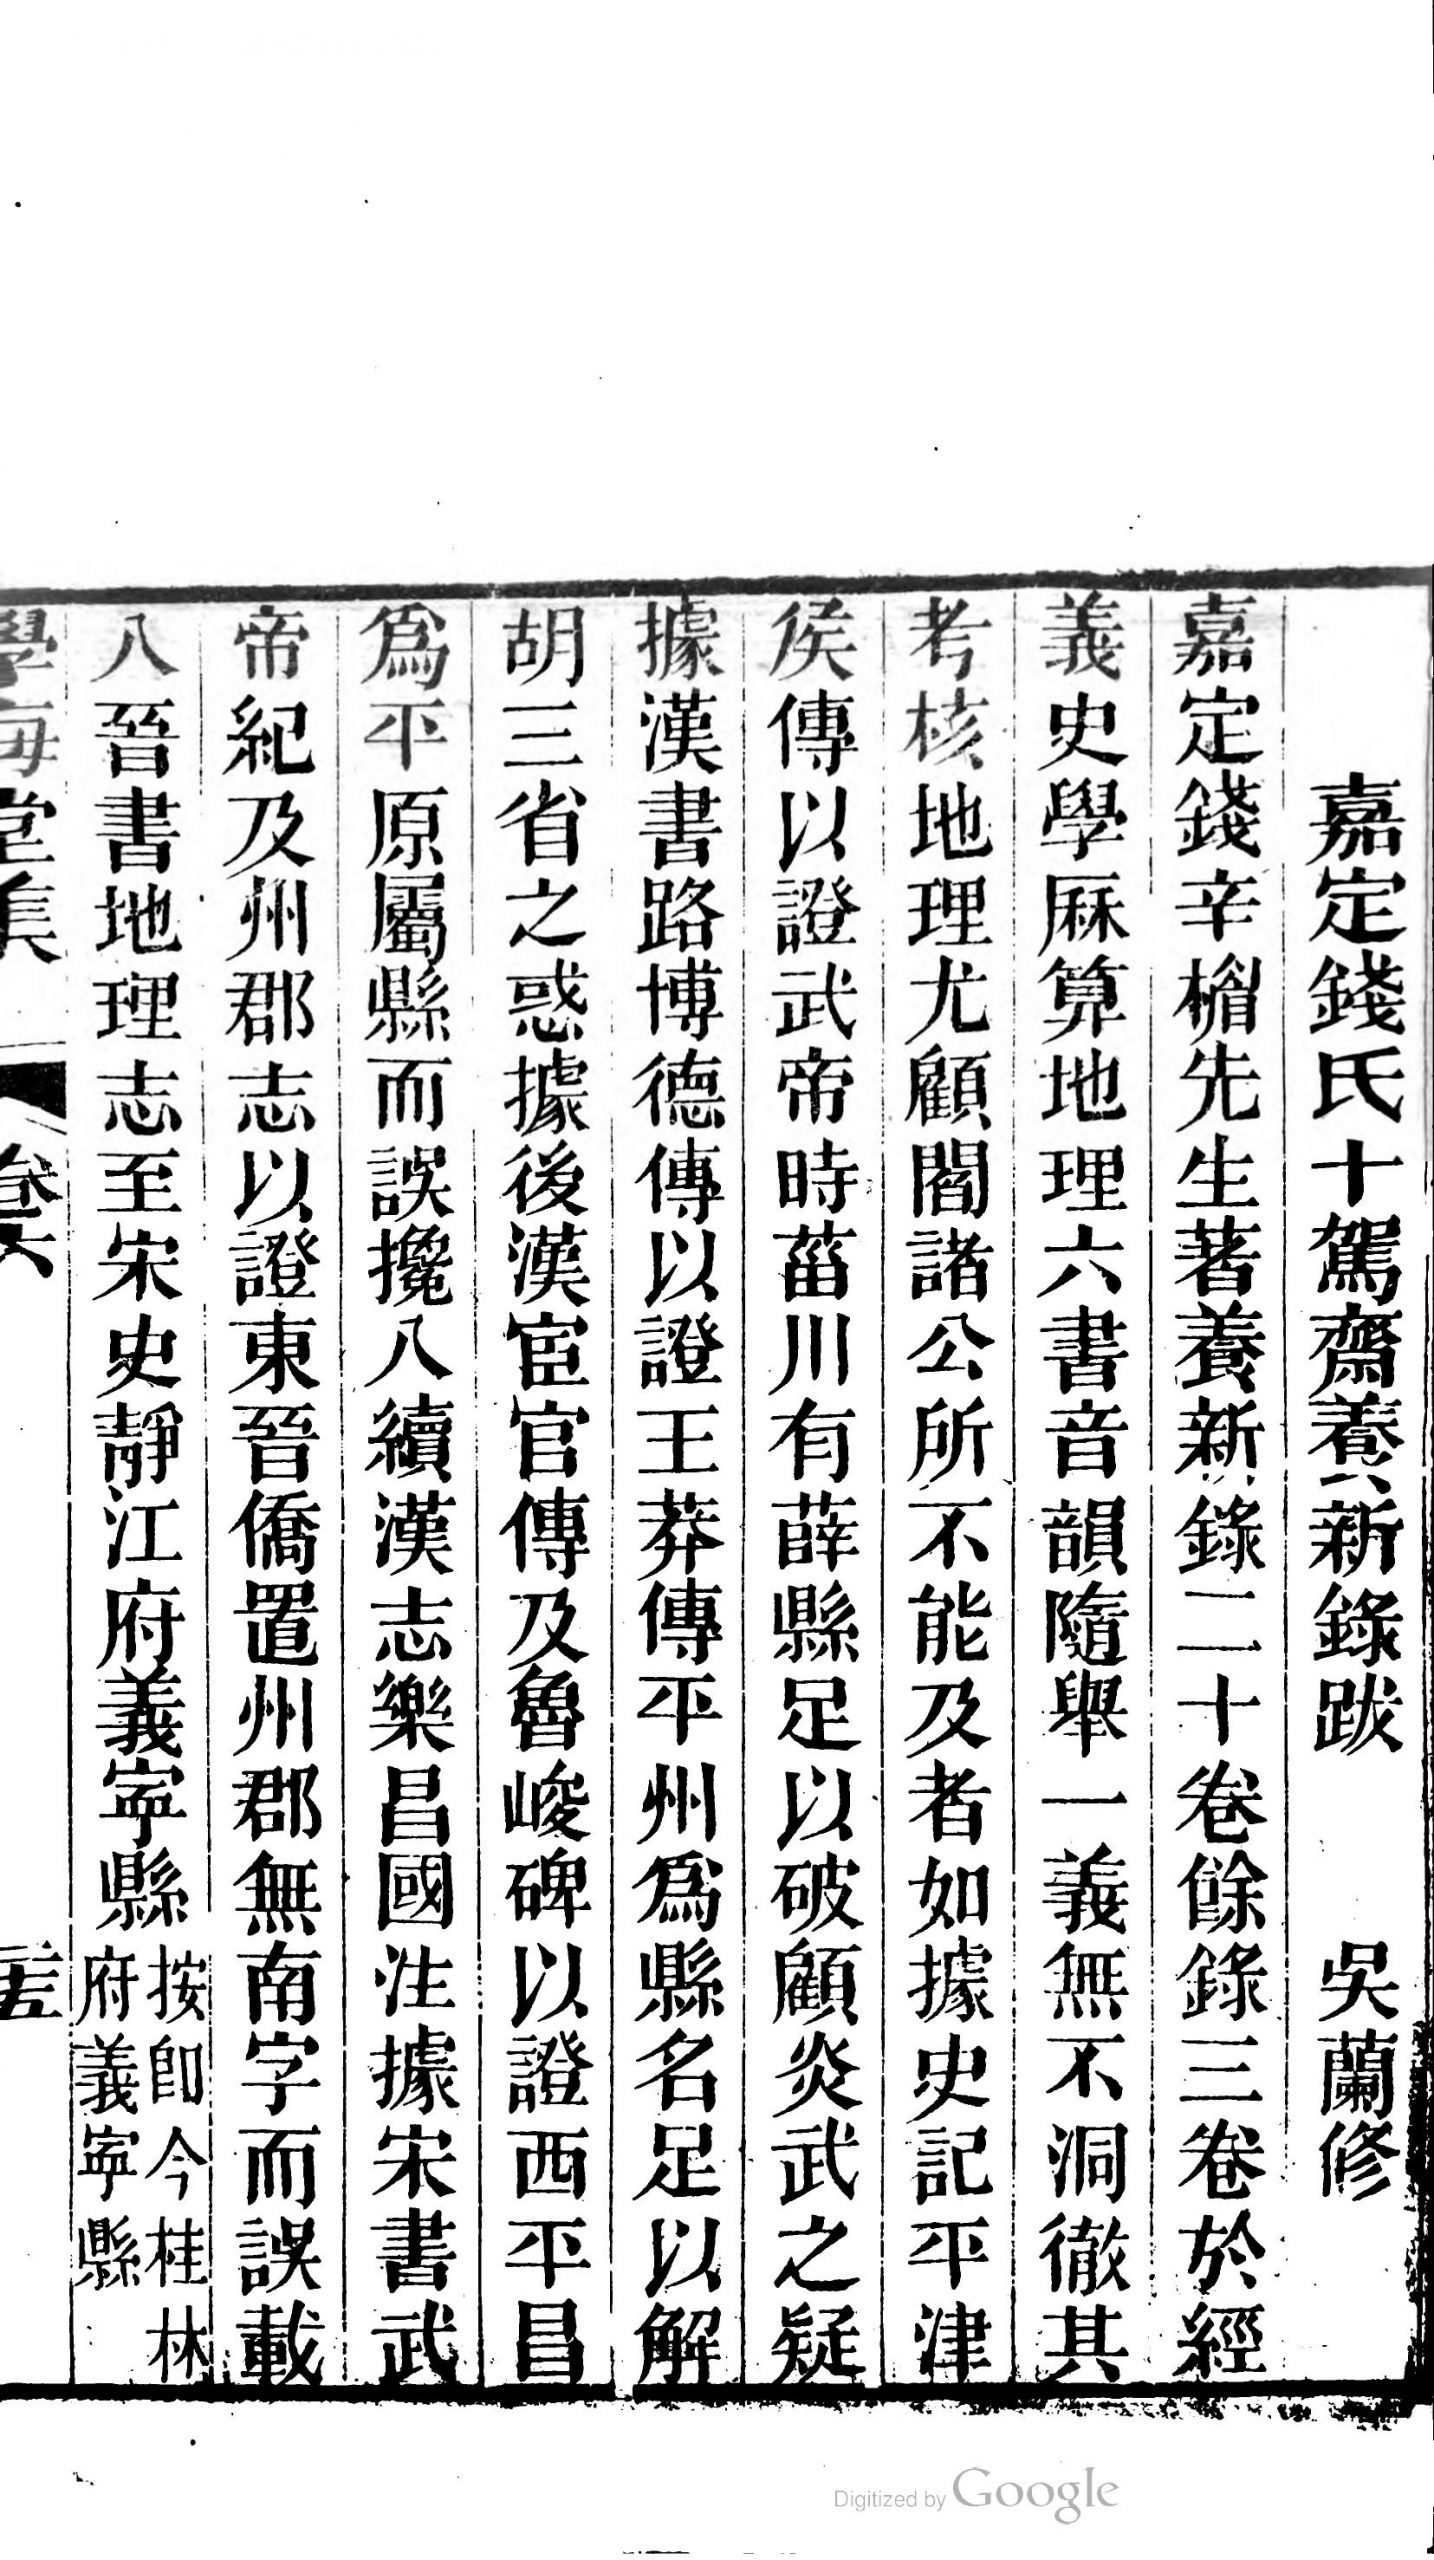 嘉定錢氏十駕齋養新錄跋　吳蘭修
嘉定錢辛楣先生著養新錄二十卷餘錄三卷於經
義史學厤算地理六書音韻隨舉一義無不洞徹其
考核地理尤顧閻諸公所不能及者如據史記平津
侯傳以證武帝時菑川有薛縣足以破顧炎武之疑
據漢書路博德傳以證王莽傳平州爲縣名足以解
胡三省之惑據後漢宦官傳及魯峻碑以證西平昌
爲平原屬縣而誤攙八續漢志樂昌國注據宋書武
帝紀及州郡志以證東晉僑置州郡無南字而誤載
八晉書地理志至宋史靜江府義寧縣按卽今桂林府義寧縣
學海堂集　卷六
Digitized by Google